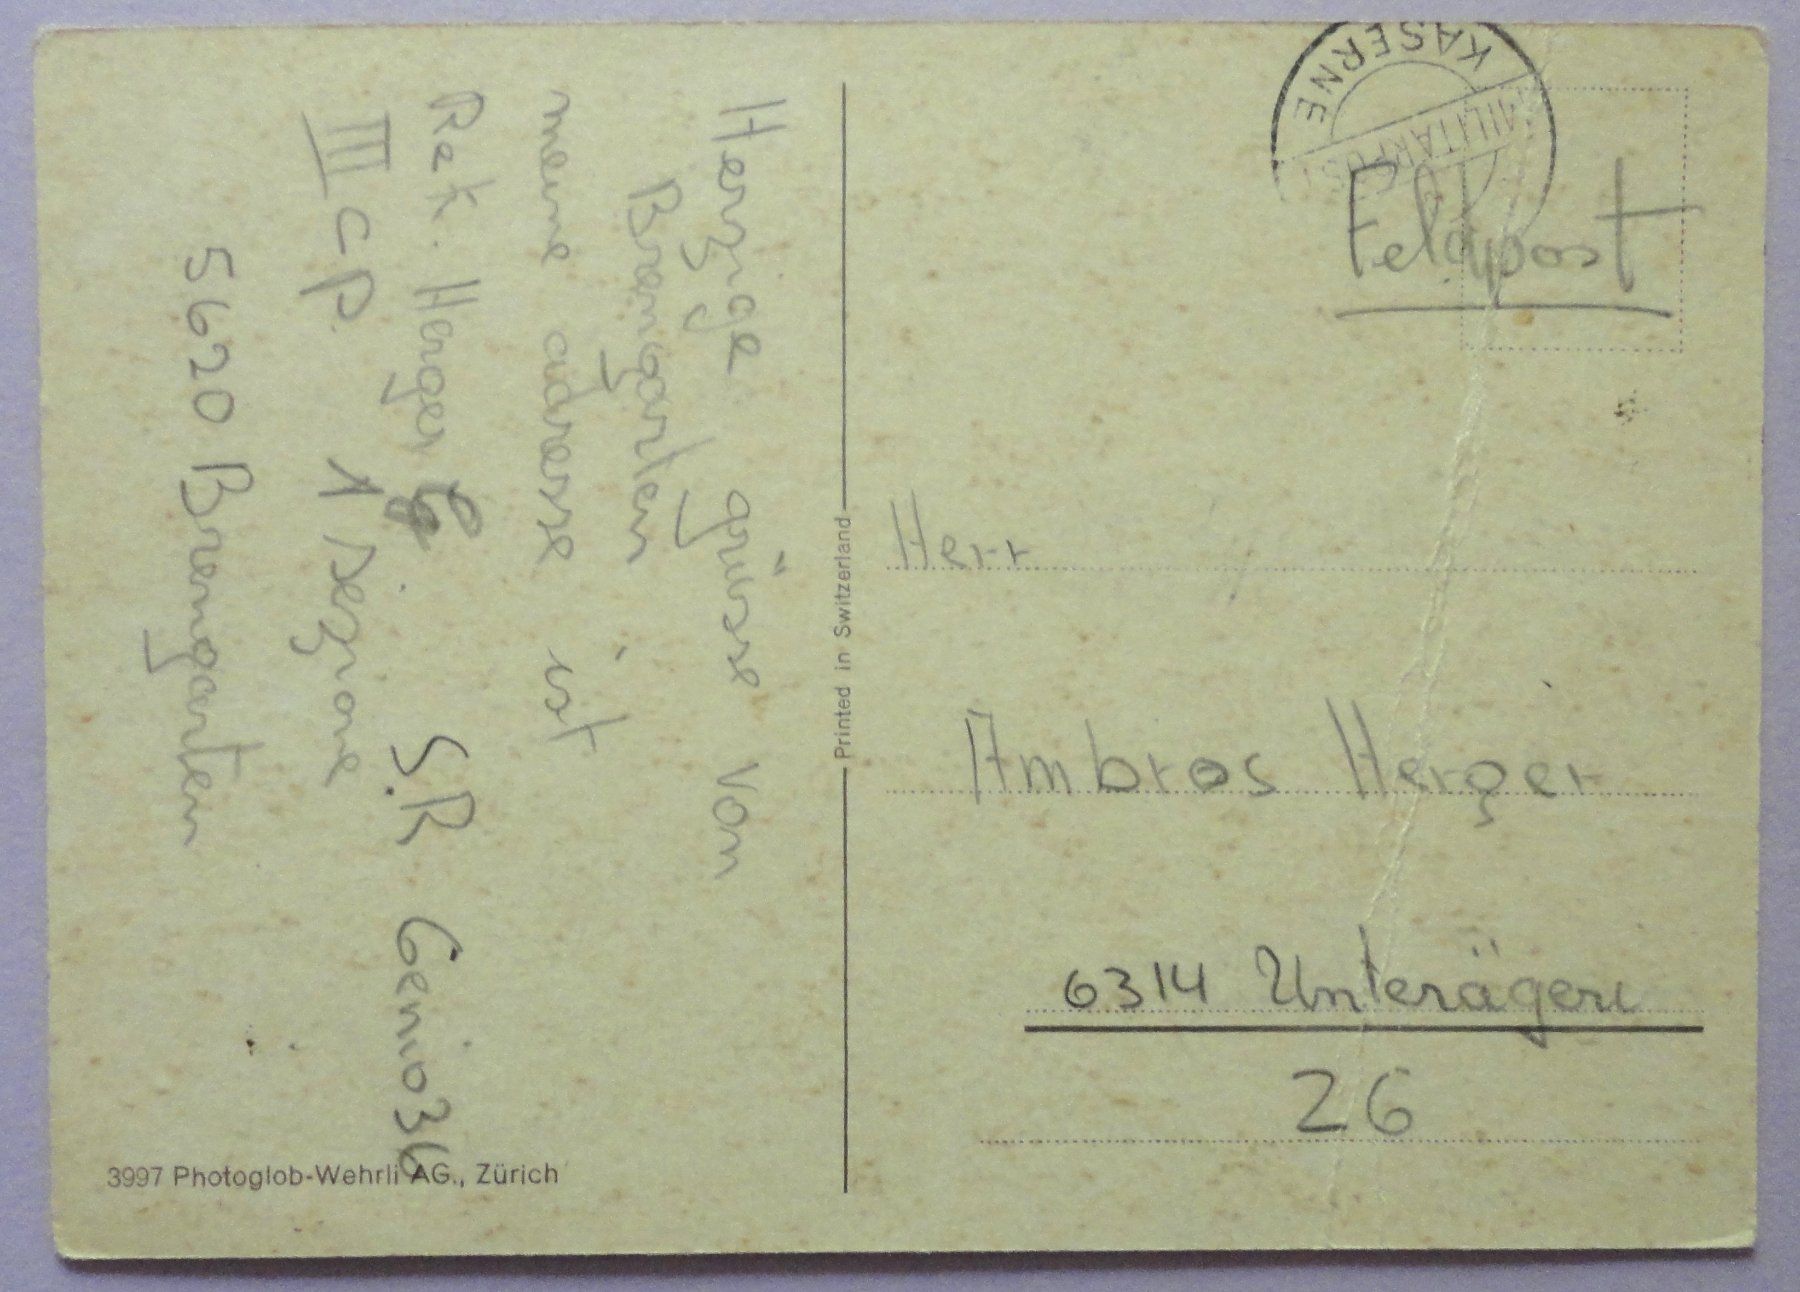 Herzige grüsse von
Bremgarten
meine adresse ist
Rek. Herger S.R Genio 36
III CP. 1 Sezione
5620 Bremgarten
3997 Photoglob-Wehrli AG., Zürich
Printed in Switzerland
KASERNE
MILITÄRPOST
Feldpost
Herr
Ambros Herger
6314 Unterägeri
26